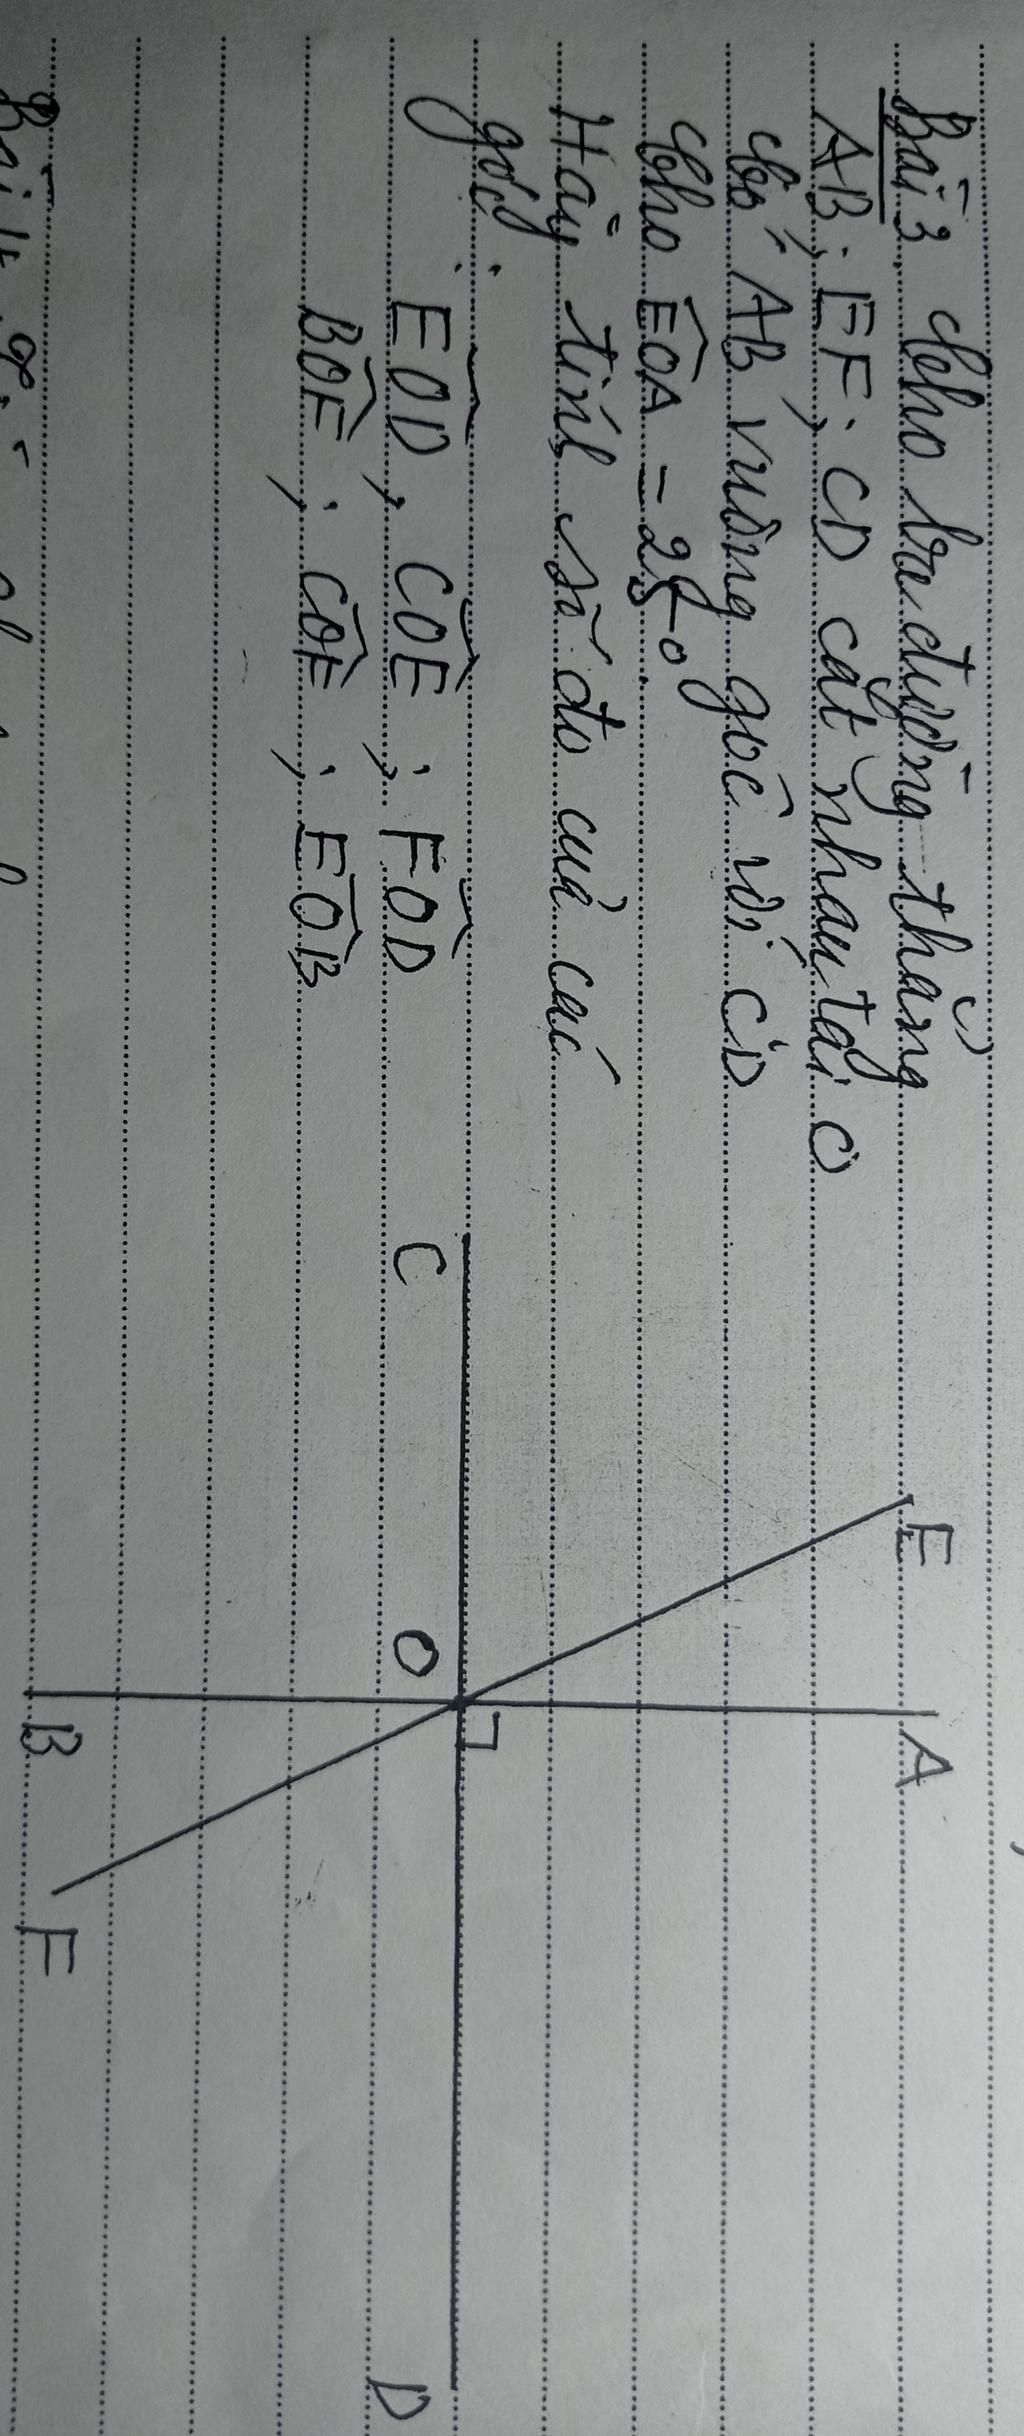 Bài 3. Cho ba đường thẳng
AB; EF; CD cắt nhau tại O
Có AB vuông góc với CD
Cho EOA = 25°.
Hãy tính số đo của các
góc:
EOD, COE; FOD
BOF; COF; EOB
E
A
C
O
D
B
F
Bài 4.